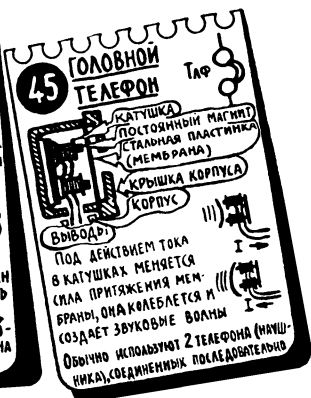 45
ГОЛОВНОЙ
ТЕЛЕФОН
Тлф
КАТУШКА
ПОСТОЯННЫЙ МАГНИТ
СТАЛЬНАЯ ПЛАСТИНКА
(МЕМБРАНА)
КРЫШКА КОРПУСА
КОРПУС
ВЫВОДЫ
ПОД ДЕЙСТВИЕМ ТОКА
В КАТУШКАХ МЕНЯЕТСЯ
СИЛА ПРИТЯЖЕНИЯ МЕМ-
БРАНЫ, ОНА КОЛЕБЛЕТСЯ И
СОЗДАЕТ ЗВУКОВЫЕ ВОЛНЫ
I
I
ОБЫЧНО ИСПОЛЬЗУЮТ 2 ТЕЛЕФОНА (НАУШ-
НИКА), СОЕДИНЕННЫХ ПОСЛЕДОВАТЕЛЬНО